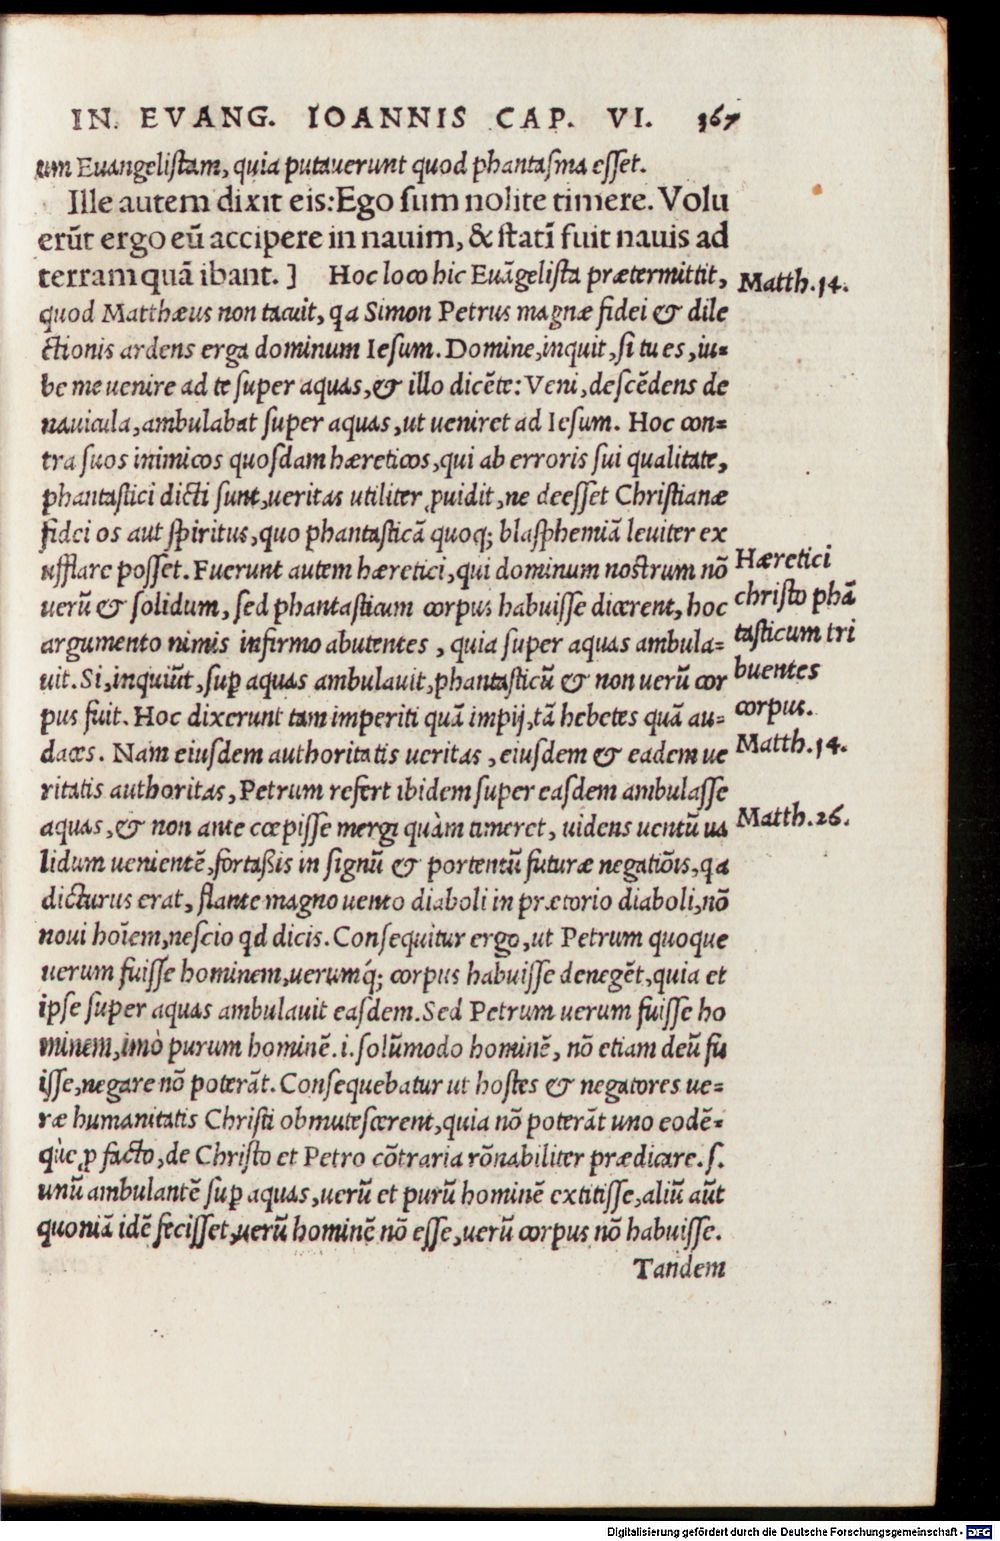 IN. EVANG. IOANNIS CAP. VI. 167
tum Euangelistam, quia putauerunt quod phantasma esset.
Ille autem dixit eis: Ego sum nolite timere. Volu
erūt ergo eū accipere in nauim, & statī fuit nauis ad
terram quā ibant. ] Hoc loco hic Euāgelista prætermittit,
Matth. 14.
quod Matthæus non tacuit, qa Simon Petrus magnæ fidei & dile
ctionis ardens erga dominum Iesum. Domine, inquit, si tu es, iu-
be me uenire ad te super aquas, & illo dicēte: Veni, descēdens de
nauicula, ambulabat super aquas, ut ueniret ad Iesum. Hoc con-
tra suos inimicos quosdam hæreticos, qui ab erroris sui qualitate,
phantastici dicti sunt, ueritas utiliter ꝓuidit, ne deesset Christianæ
fidei os aut spiritus, quo phantasticā quoq; blasphemiā leuiter ex
ufflare posset. Fuerunt autem hæretici, qui dominum nostrum nō
Hæretici
uerū & solidum, sed phantasticum corpus habuisse dicerent, hoc
christo phā
argumento nimis infirmo abutentes, quia super aquas ambula-
tasticum tri
uit. Si, inquiūt, suꝑ aquas ambulauit, phantasticū & non uerū cor
buentes
pus fuit. Hoc dixerunt tam imperiti quā impij, tā hebetes quā au-
corpus.
daces. Nam eiusdem authoritatis ueritas, eiusdem & eadem ue
Matth. 14.
ritatis authoritas, Petrum refert ibidem super easdem ambulasse
aquas, & non ante cœpisse mergi quàm timeret, uidens uentū ua
Matth. 26.
lidum uenientē, fortaßis in signū & portentū futuræ negatiōis, qa
dicturus erat, flante magno uento diaboli in prætorio diaboli, nō
noui hoīem, nescio qd dicis. Consequitur ergo, ut Petrum quoque
uerum fuisse hominem, uerumq́; corpus habuisse denegēt, quia et
ipse super aquas ambulauit easdem. Sed Petrum uerum fuisse ho
minem, imò purum hominē. i. solūmodo hominē, nō etiam deū fu
isse, negare nō poterāt. Consequebatur ut hostes & negatores ue-
ræ humanitatis Christi obmutescerent, quia nō poterāt uno eodē-
qùe ꝓ facto, de Christo et Petro cōtraria rōnabiliter prædicare. s.
unū ambulantē suꝑ aquas, uerū et purū hominē extitisse, aliū aūt
quoniā idē fecisset, uerū hominē nō esse, uerū corpus nō habuisse.
Tandem
Digitalisierung gefördert durch die Deutsche Forschungsgemeinschaft - DFG